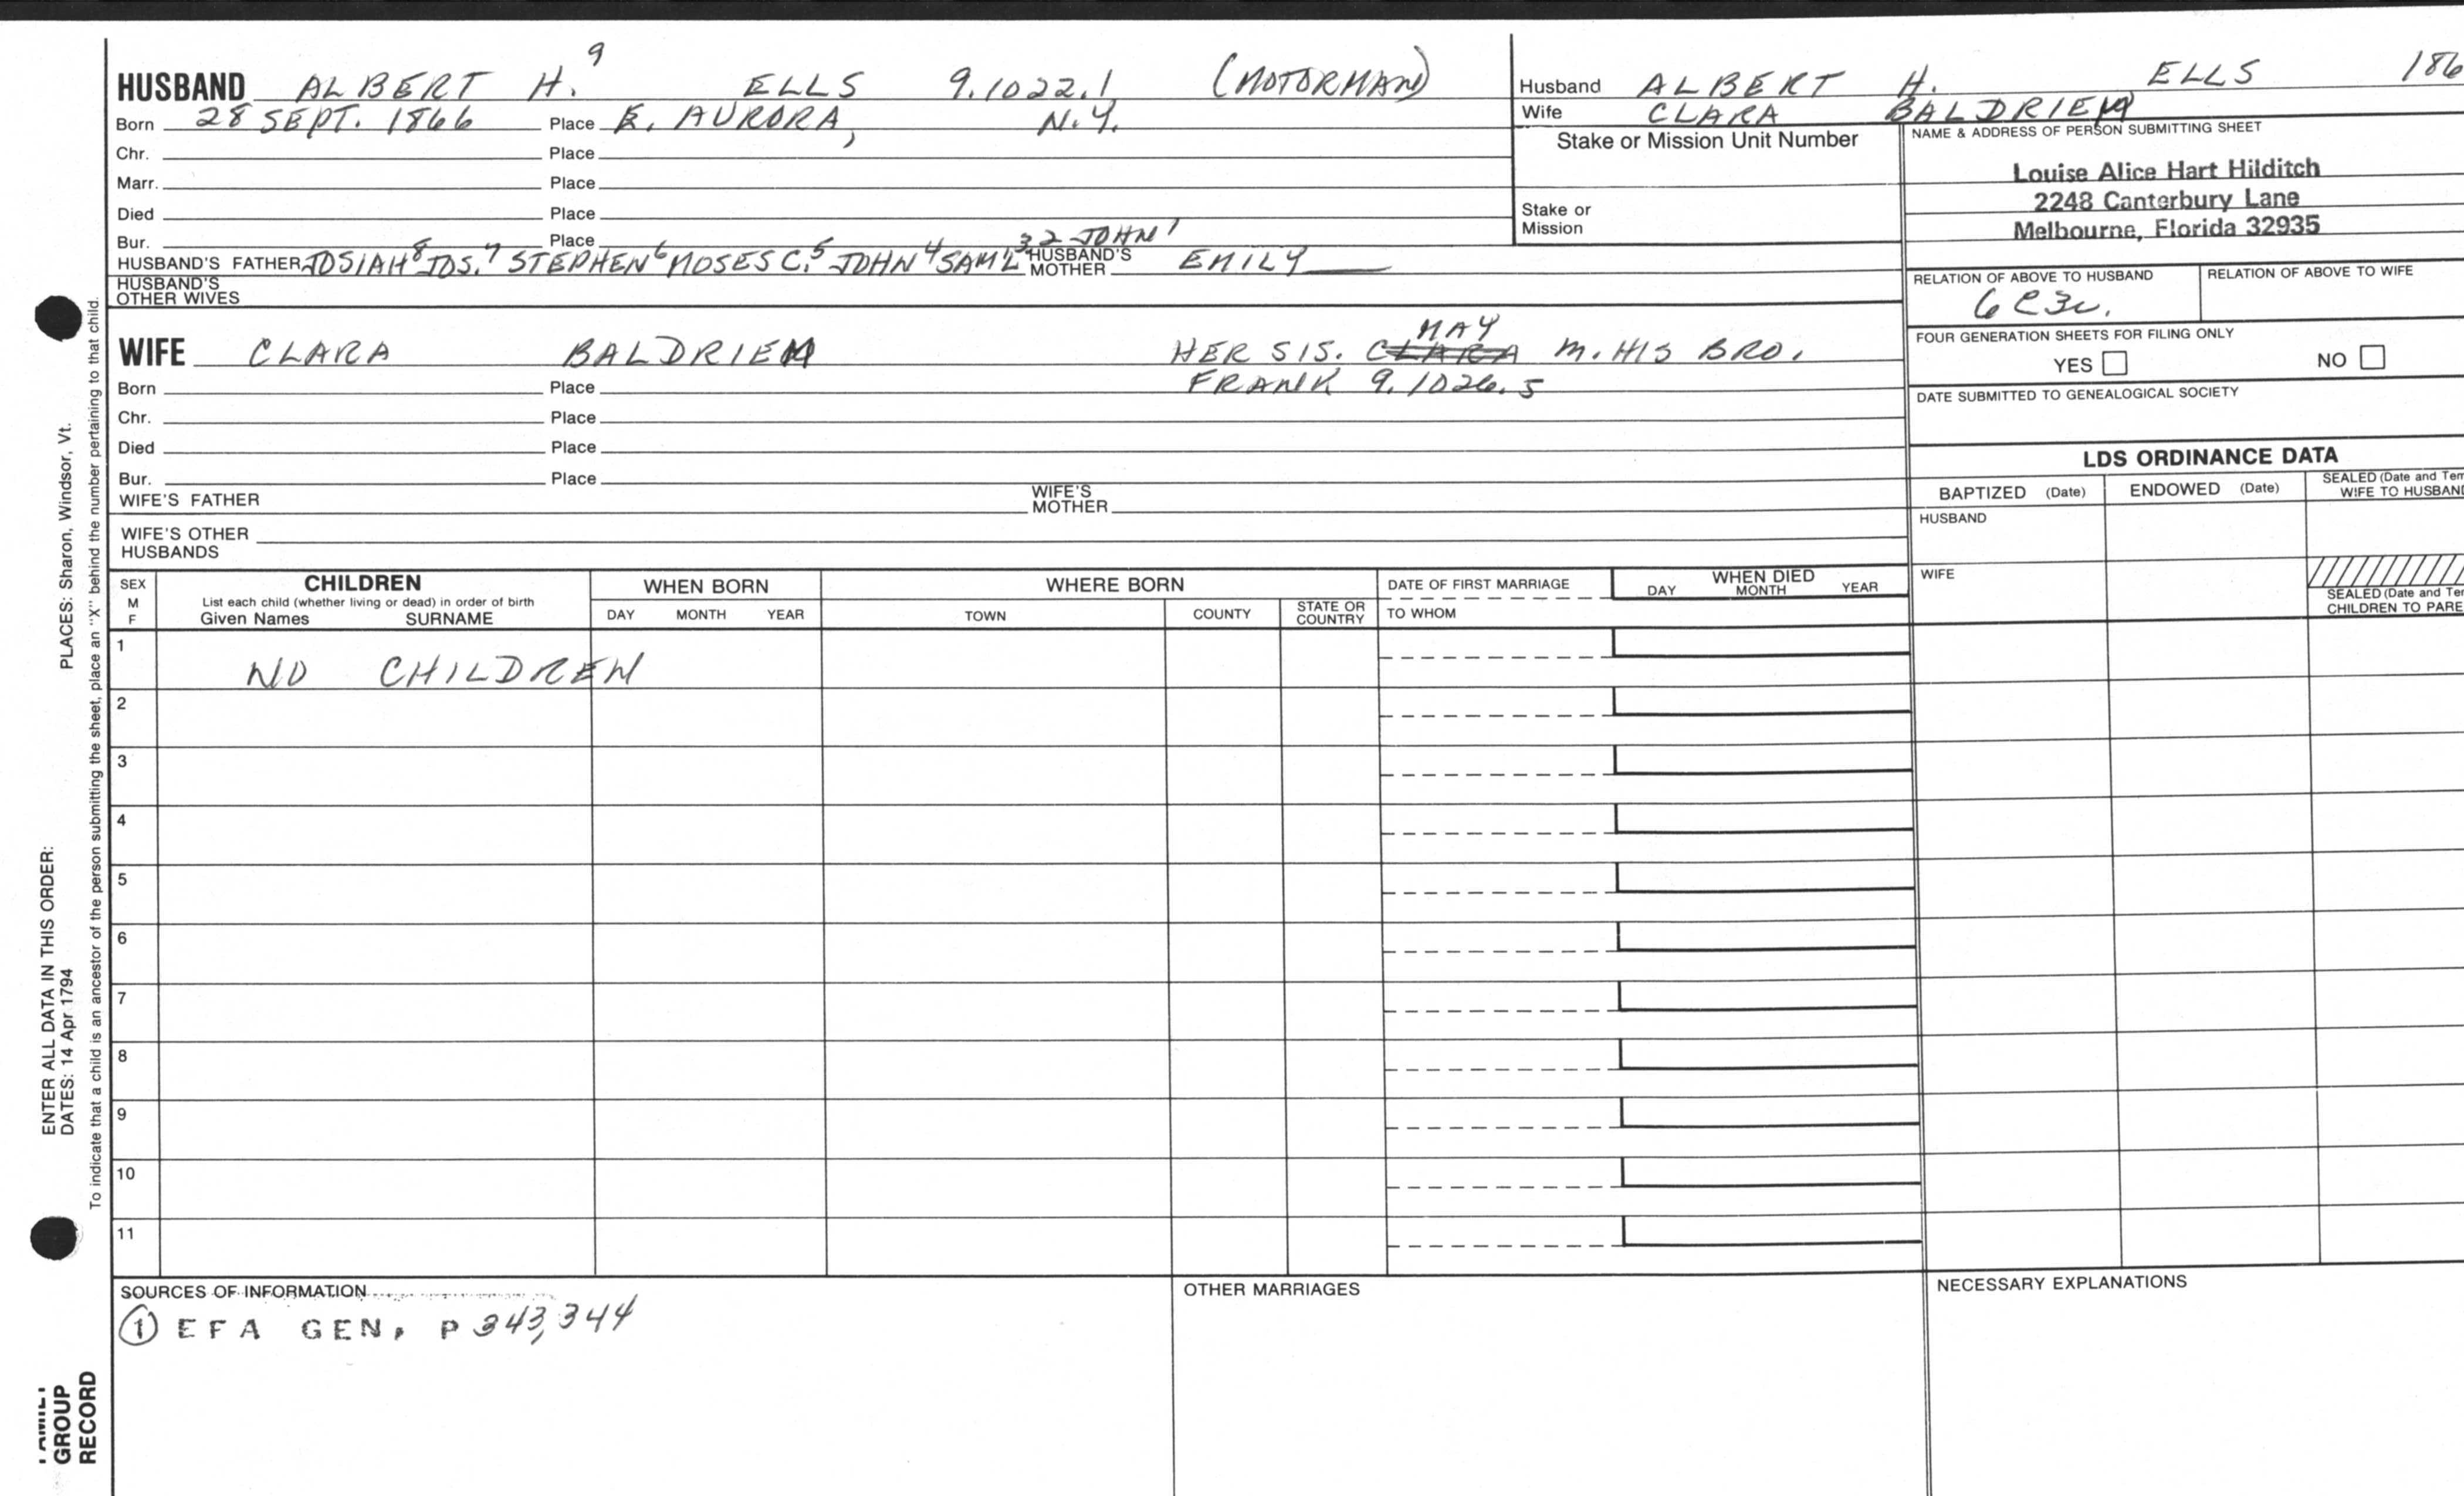 HUSBAND ALBERT H.9 ELLS 9.1022.1 (MOTORMAN)
Born 28 SEPT. 1866 Place E. AURORA, N.Y.
Chr. Place
Marr. Place
Died Place
Bur. Place
HUSBAND'S FATHER JOSIAH8 JOS.7 STEPHEN6 MOSES C.5 JOHN4 SAM'L3 2 JOHN1 HUSBAND'S MOTHER EMILY
HUSBAND'S OTHER WIVES
WIFE CLARA HER SIS. CLARA MAY M. HIS BRO.
FRANK 9.1026.5
Born Place
Chr. Place
Died Place
Bur. Place
WIFE'S FATHER WIFE'S MOTHER
WIFE'S OTHER HUSBANDS
Husband ALBERT H. ELLS 186
Wife CLARA
Stake or Mission Unit Number
Stake or Mission
NAME & ADDRESS OF PERSON SUBMITTING SHEET
Louise Alice Hart Hilditch
2248 Canterbury Lane
Melbourne, Florida 32935
RELATION OF ABOVE TO HUSBAND RELATION OF ABOVE TO WIFE
6C3
FOUR GENERATION SHEETS FOR FILING ONLY
YES NO
DATE SUBMITTED TO GENEALOGICAL SOCIETY
LDS ORDINANCE DATA
BAPTIZED (Date) ENDOWED (Date) SEALED (Date and Tem
WIFE TO HUSBAND
HUSBAND
WIFE
SEALED (Date and Tem
CHILDREN TO PARE
SEX M F
CHILDREN
List each child (whether living or dead) in order of birth
Given Names SURNAME
WHEN BORN
DAY MONTH YEAR
WHERE BORN
TOWN COUNTY STATE OR COUNTRY
DATE OF FIRST MARRIAGE
TO WHOM
WHEN DIED
DAY MONTH YEAR
1 NO CHILDREN
2
3
4
5
6
7
8
9
10
11
SOURCES OF INFORMATION
① EFA GEN. P 343, 344
OTHER MARRIAGES
NECESSARY EXPLANATIONS
PLACES: Sharon, Windsor, Vt.
ENTER ALL DATA IN THIS ORDER:
DATES: 14 Apr 1794
To indicate that a child is an ancestor of the person submitting the sheet, place an "X" behind the number pertaining to that child.
FAMILY
GROUP
RECORD